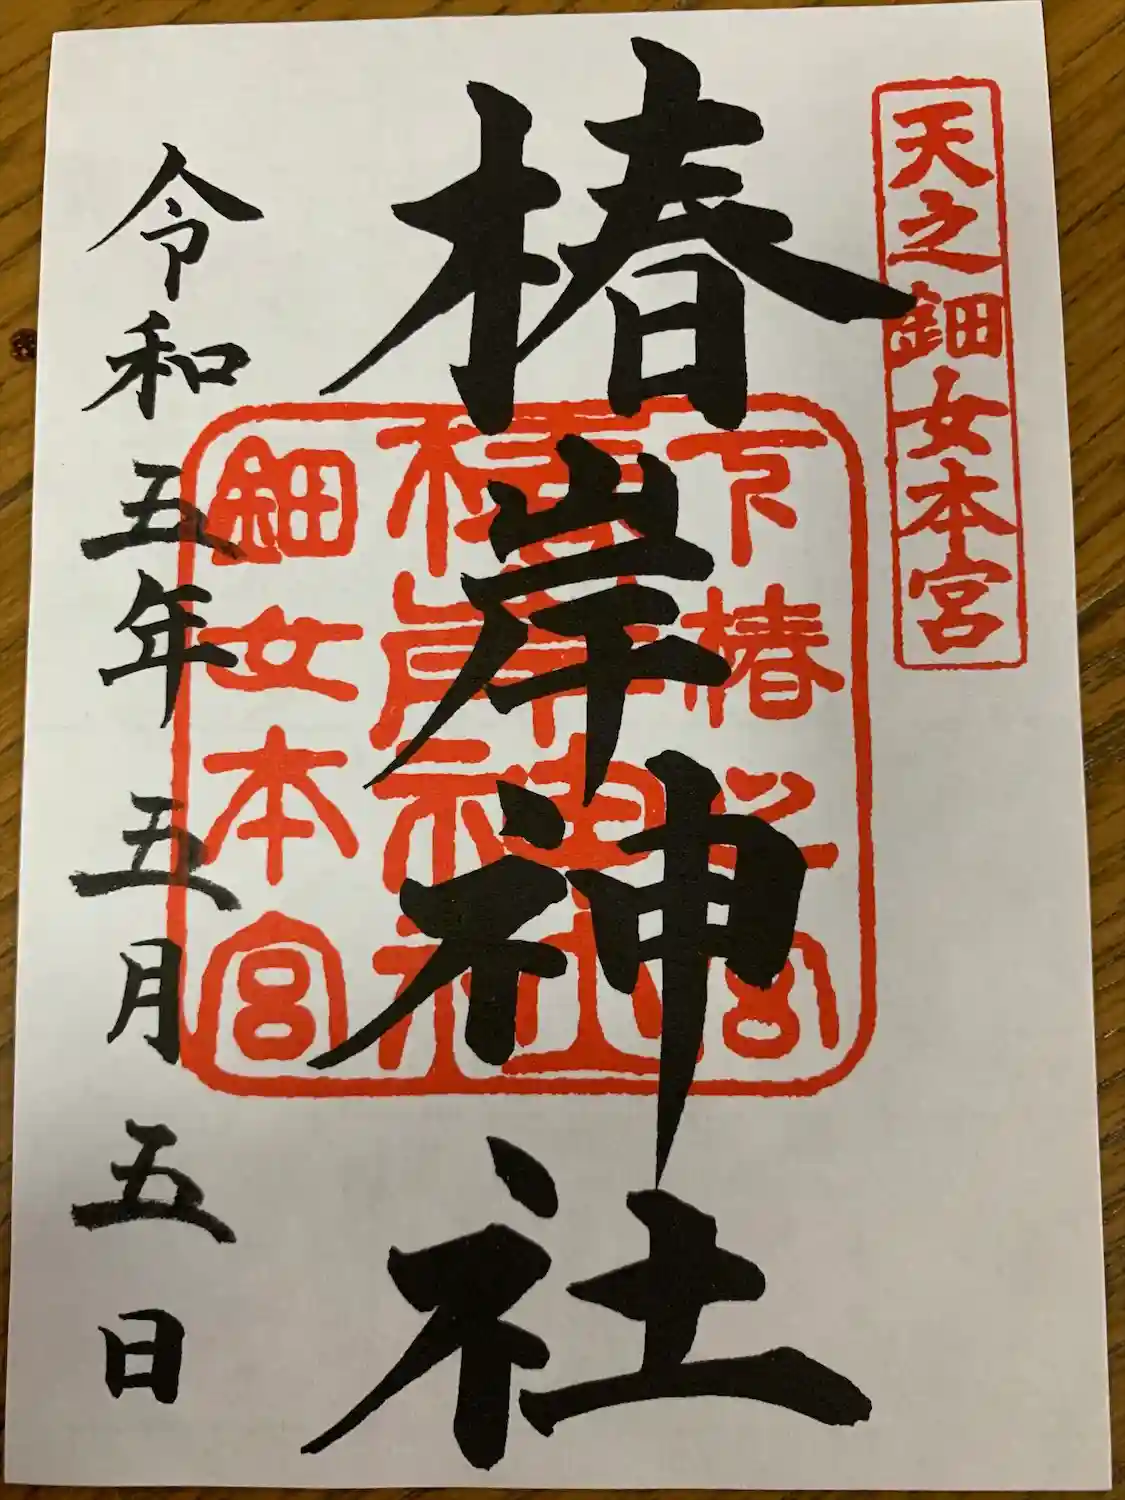 天之鈿女本宮
椿岸神社
下椿
鈿女本宮
令和五年五月五日